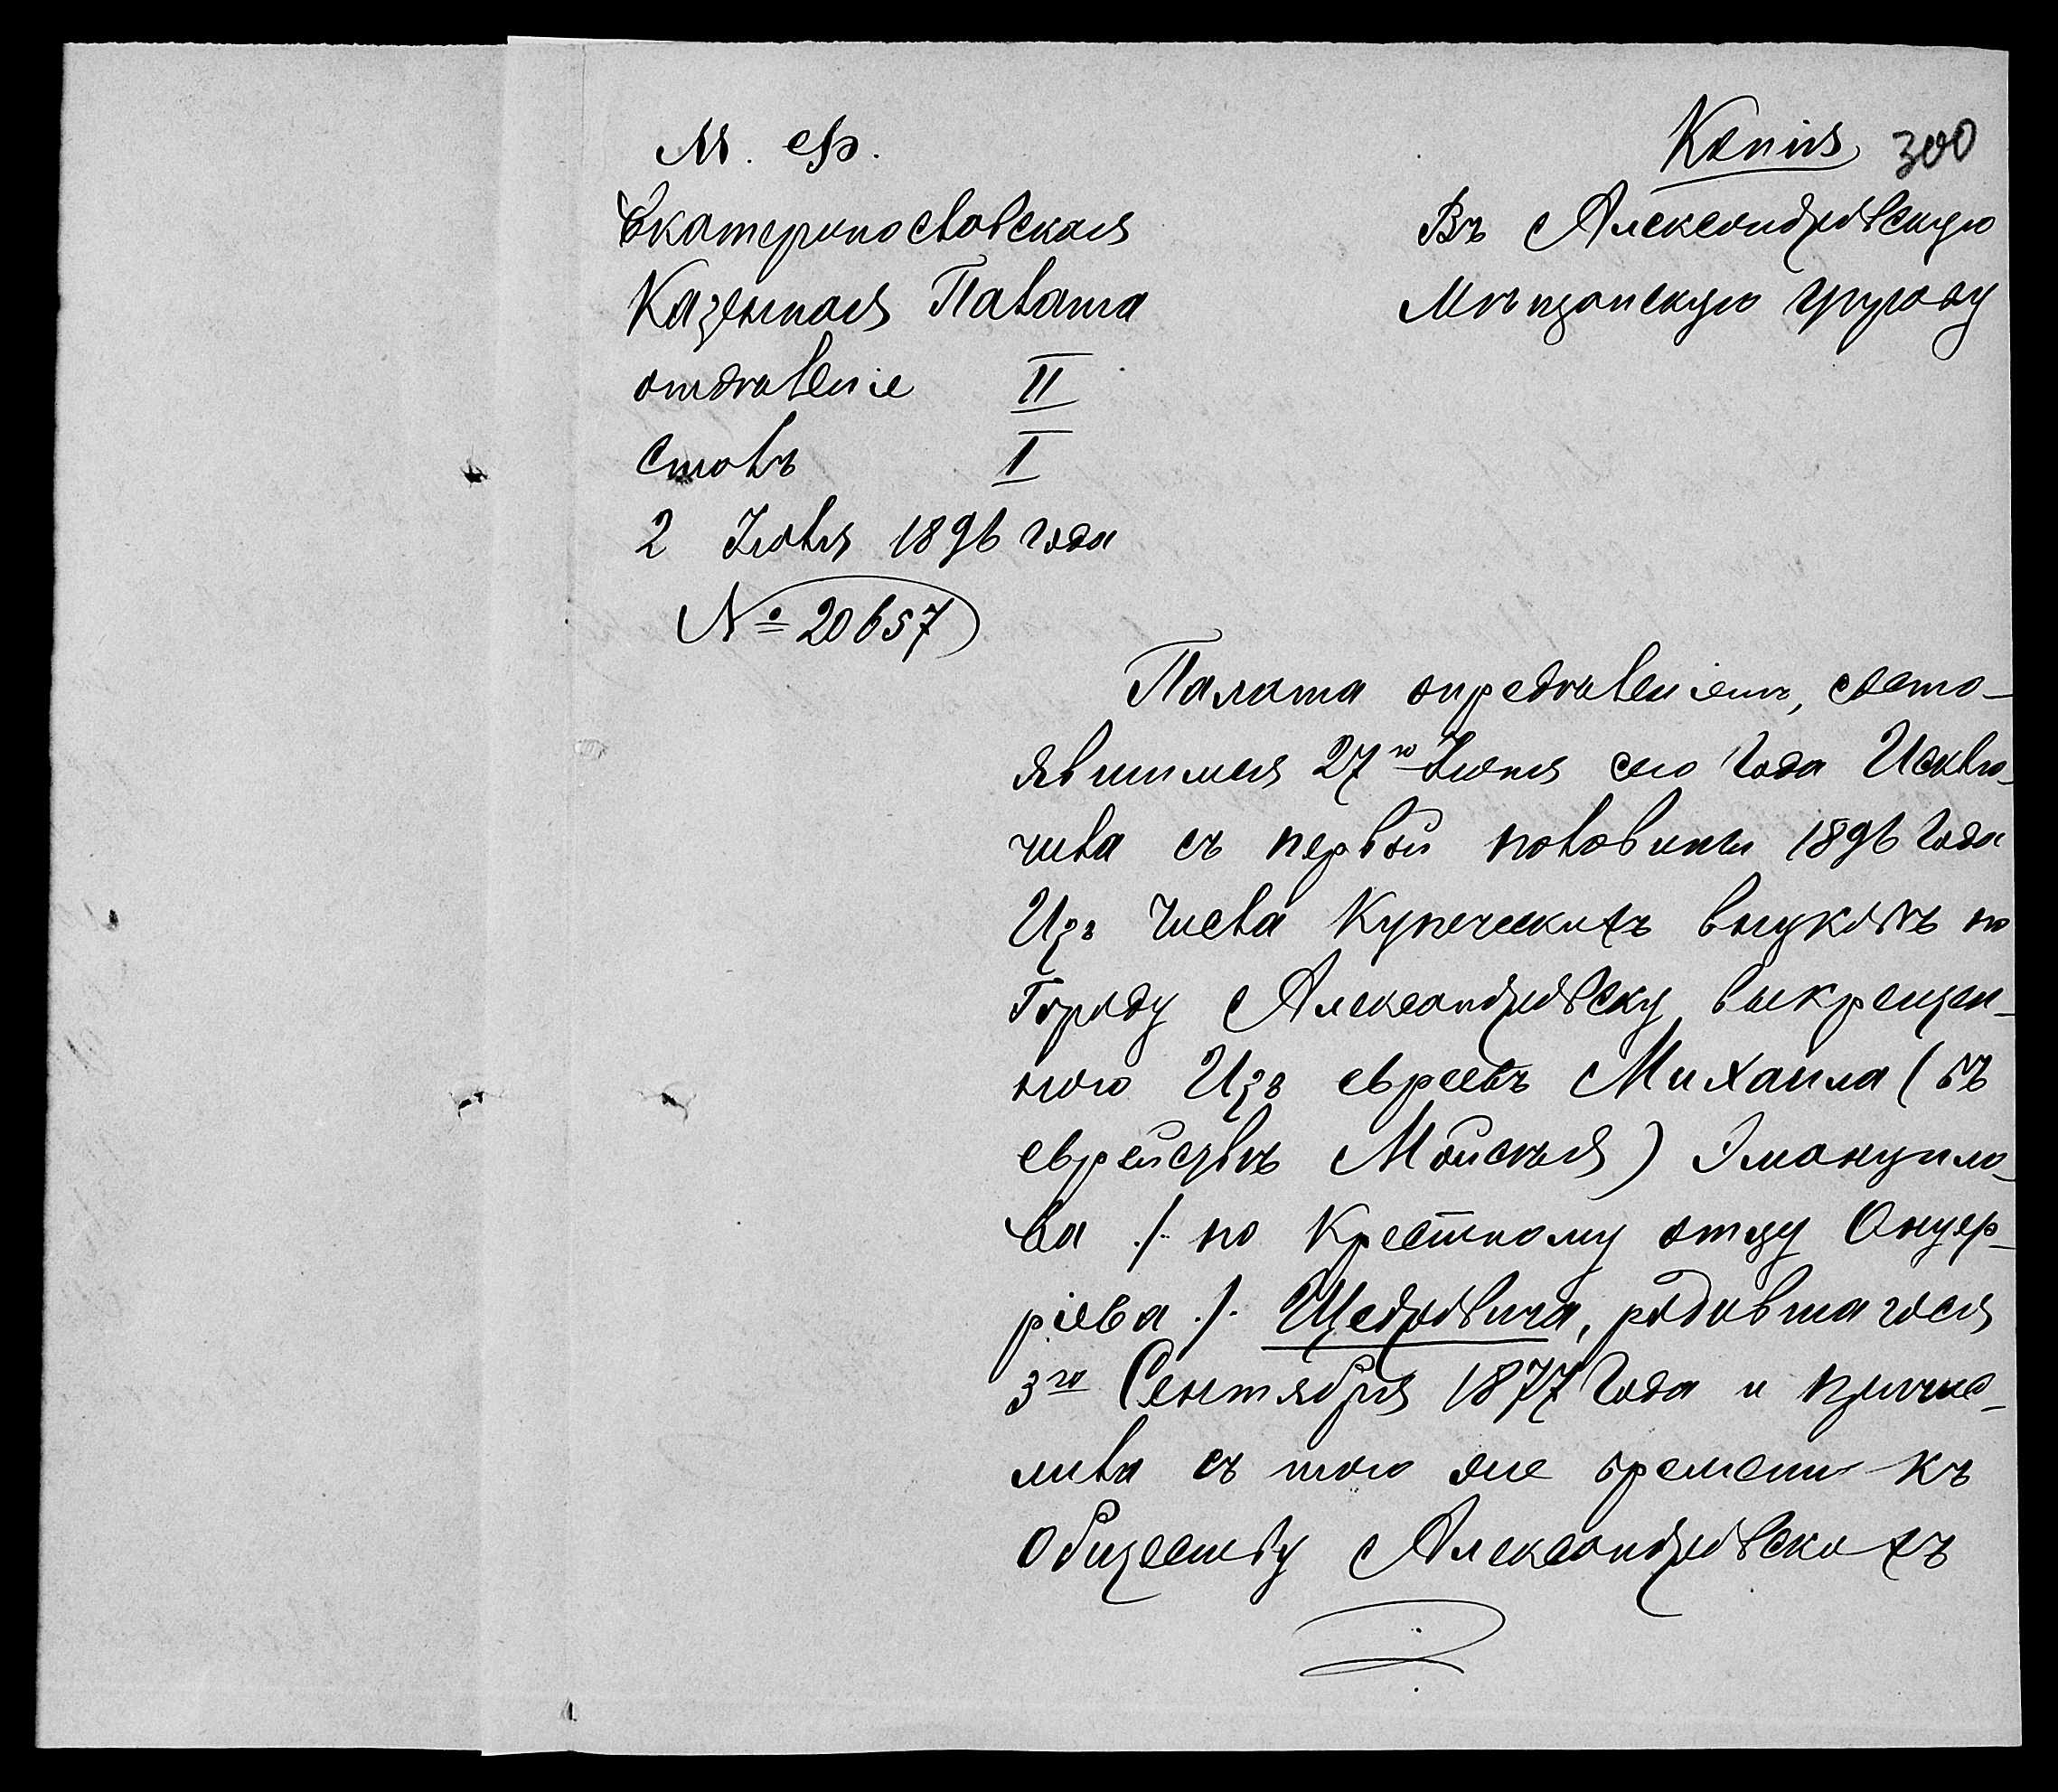 М. Ф.
Екатеринославская
Казенная Палата
отдѣленіе II
Столъ I
2 Іюля 1896 года
№ 20657
Копія 300
Въ Александровскую
Мѣщанскую Управу
Палата опредѣленіемъ, состо-
явшимся 27го Іюня сего года Исклю-
чила съ первой половины 1896 года
Изъ Числа Купеческихъ внуковъ по
Городу Александровску выкрещен-
ного Изъ евреевъ Михаила (въ
еврействѣ Мойсея) Эмануило-
ва ./. по Крестному отцу Онуф-
ріева ./. Щедровича, родившагося
3го Сентября 1877 Года и причис-
лила съ того же времени къ
Обществу Александровскихъ